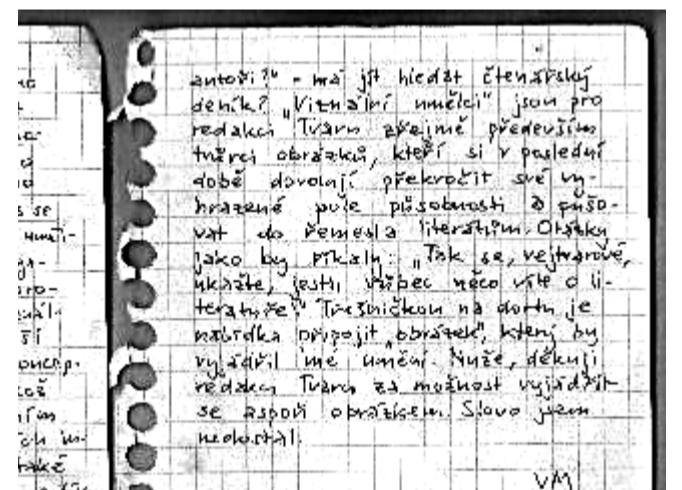 autoři?" - má jít hledat čtenářský
deník? „Vizuální umělci" jsou pro
redakci Tvaru zřejmě především
tvůrci obrázků, kteří si v poslední
době dovolují překročit své vy-
hrazené pole působnosti a fušo-
vat do řemesla literátům. Otázky
jako by říkaly: „Tak se, vejtvarové,
ukažte, jestli vůbec něco víte o li-
teratuře!" Třešničkou na dortu je
nabídka připojit „obrázek", který by
vyjádřil mé umění. Nuže, děkuji
redakci Tvaru za možnost vyjádřit
se aspoň obrázkem. Slovo jsem
nedostal.
VM